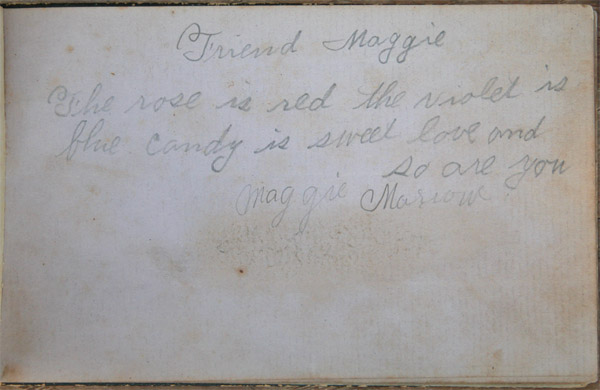 Friend Maggie
The rose is red the violet is
blue candy is sweet love and
so are you
Maggie